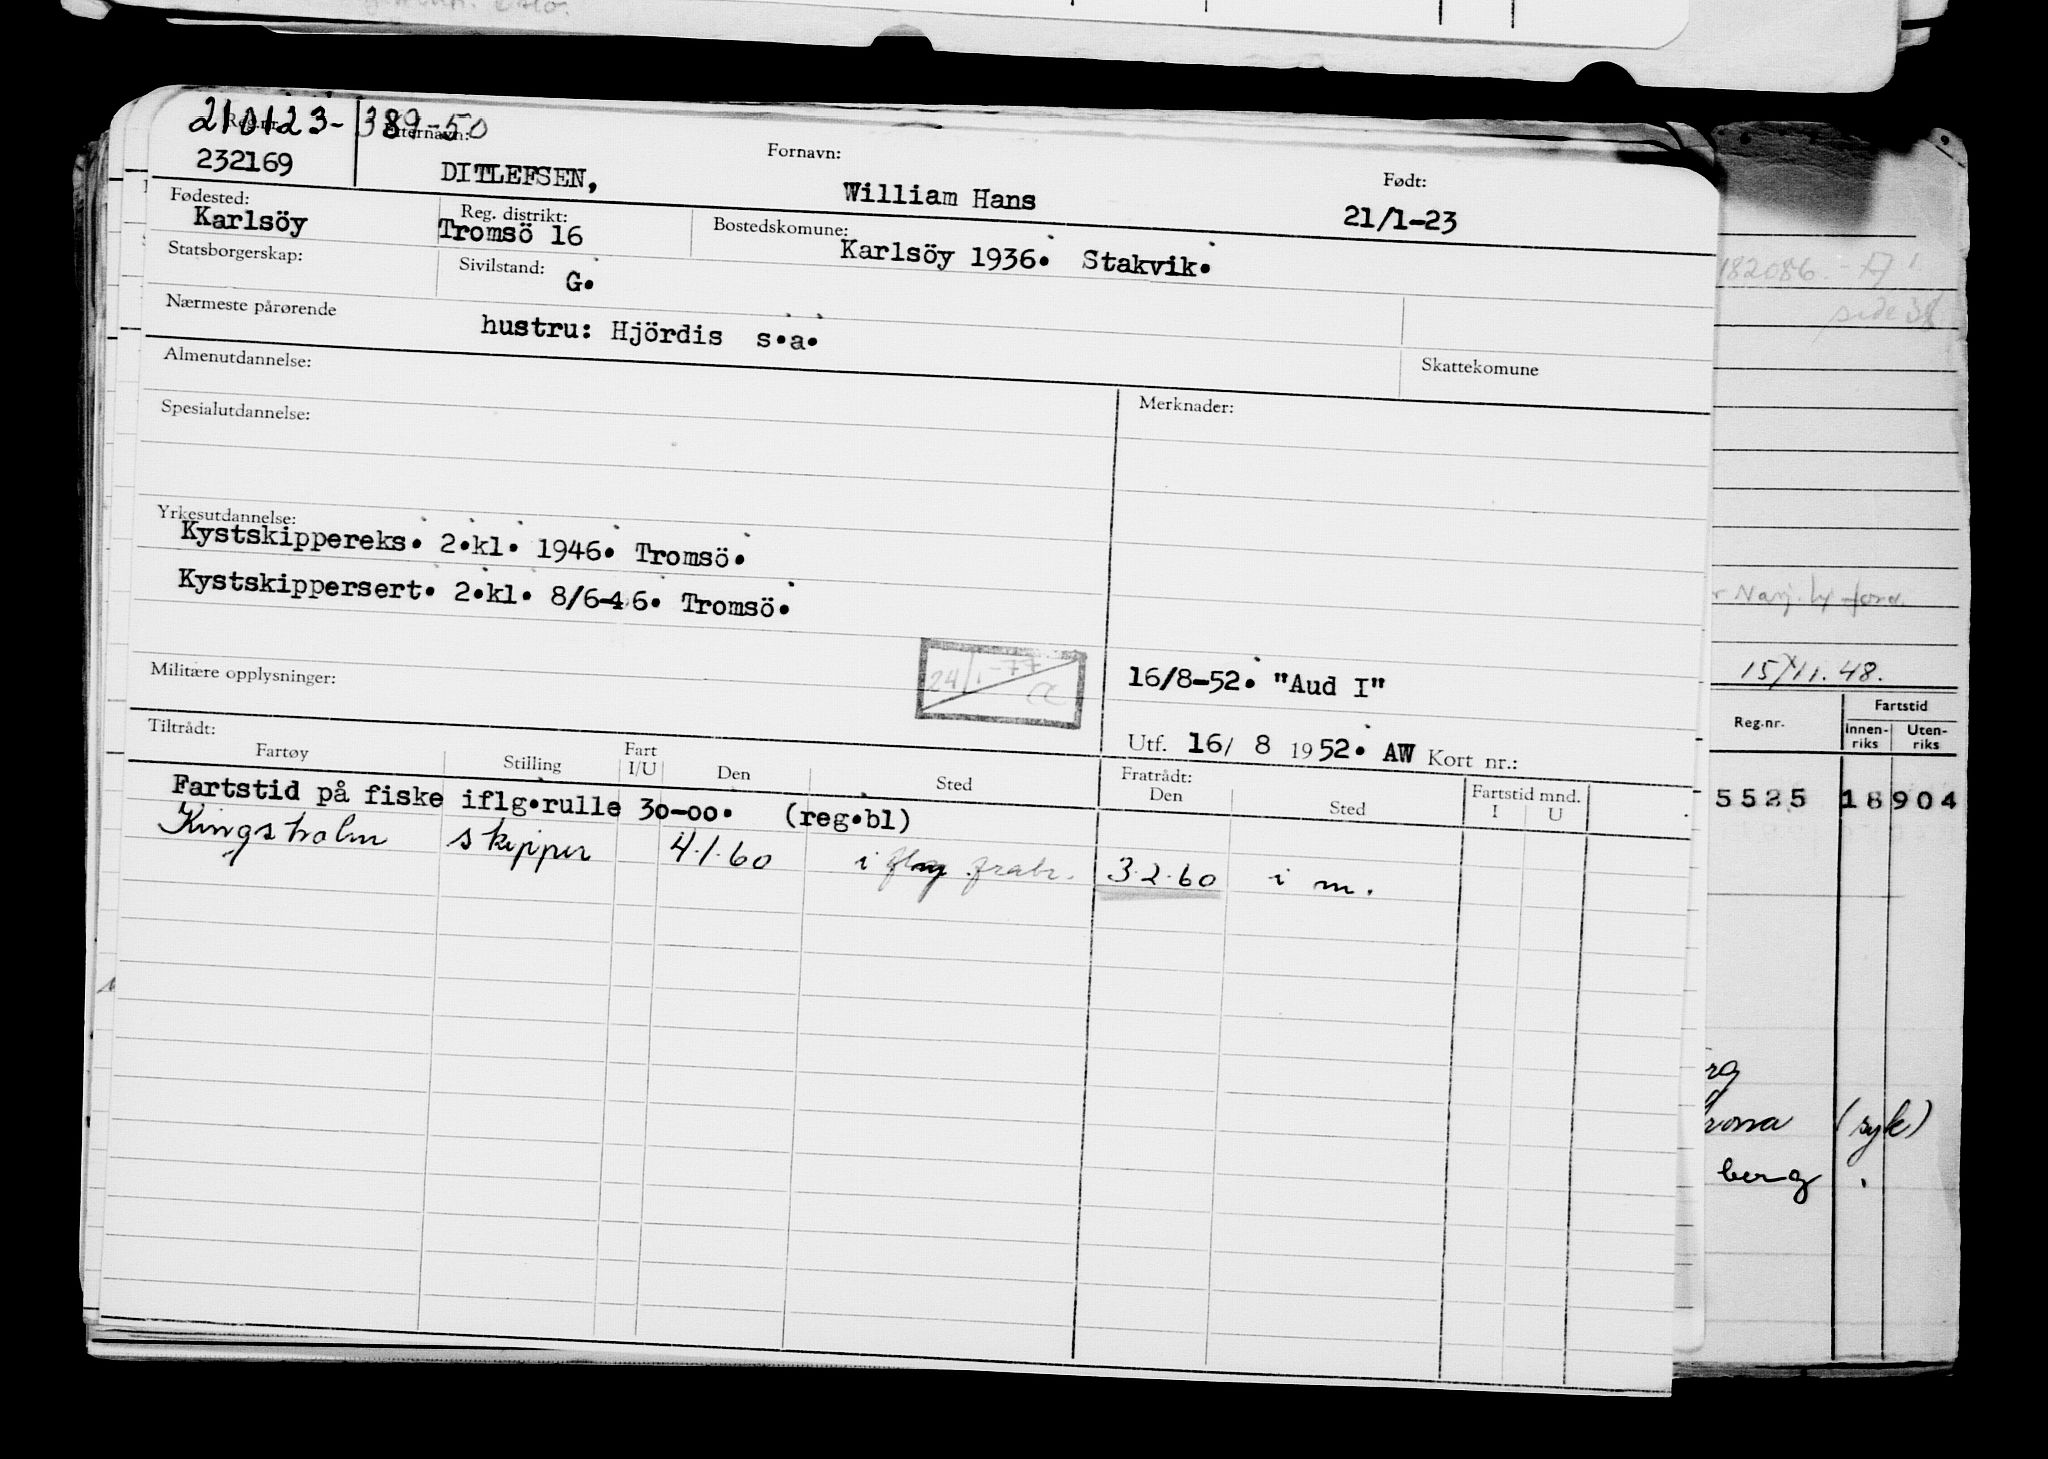 210123-38950
Reg.nr. Etternavn: Fornavn: Født:
232169 DITLEFSEN, William Hans 21/1-23
Fødested: Reg. distrikt: Bostedskomune:
Karlsöy Tromsö 16 Karlsöy 1936. Stakvik.
Statsborgerskap: Sivilstand: G.
Nærmeste pårørende hustru: Hjördis s.a.
Almenutdannelse: Skattekomune
Spesialutdannelse: Merknader:
Yrkesutdannelse:
Kystskippereks. 2.kl. 1946. Tromsö.
Kystskippersert. 2.kl. 8/6-46. Tromsö.
24/1-77
Militære opplysninger: 16/8-52. "Aud I"
Utf. 16/ 8 1952. AW Kort nr.:
Tiltrådt: Fratrådt:
Fartøy Stilling Fart I/U Den Sted Den Sted Fartstid mnd. I U
Fartstid på fiske iflg.rulle 30-00. (reg.bl)
Kingsholm skipper 4.1.60 i flg frabr. 3.2.60 i m.
182086.-A
side 38
15/11.48.
Reg.nr. Fartstid
Innen-riks Uten-riks
5525 18904
(syk)
berg